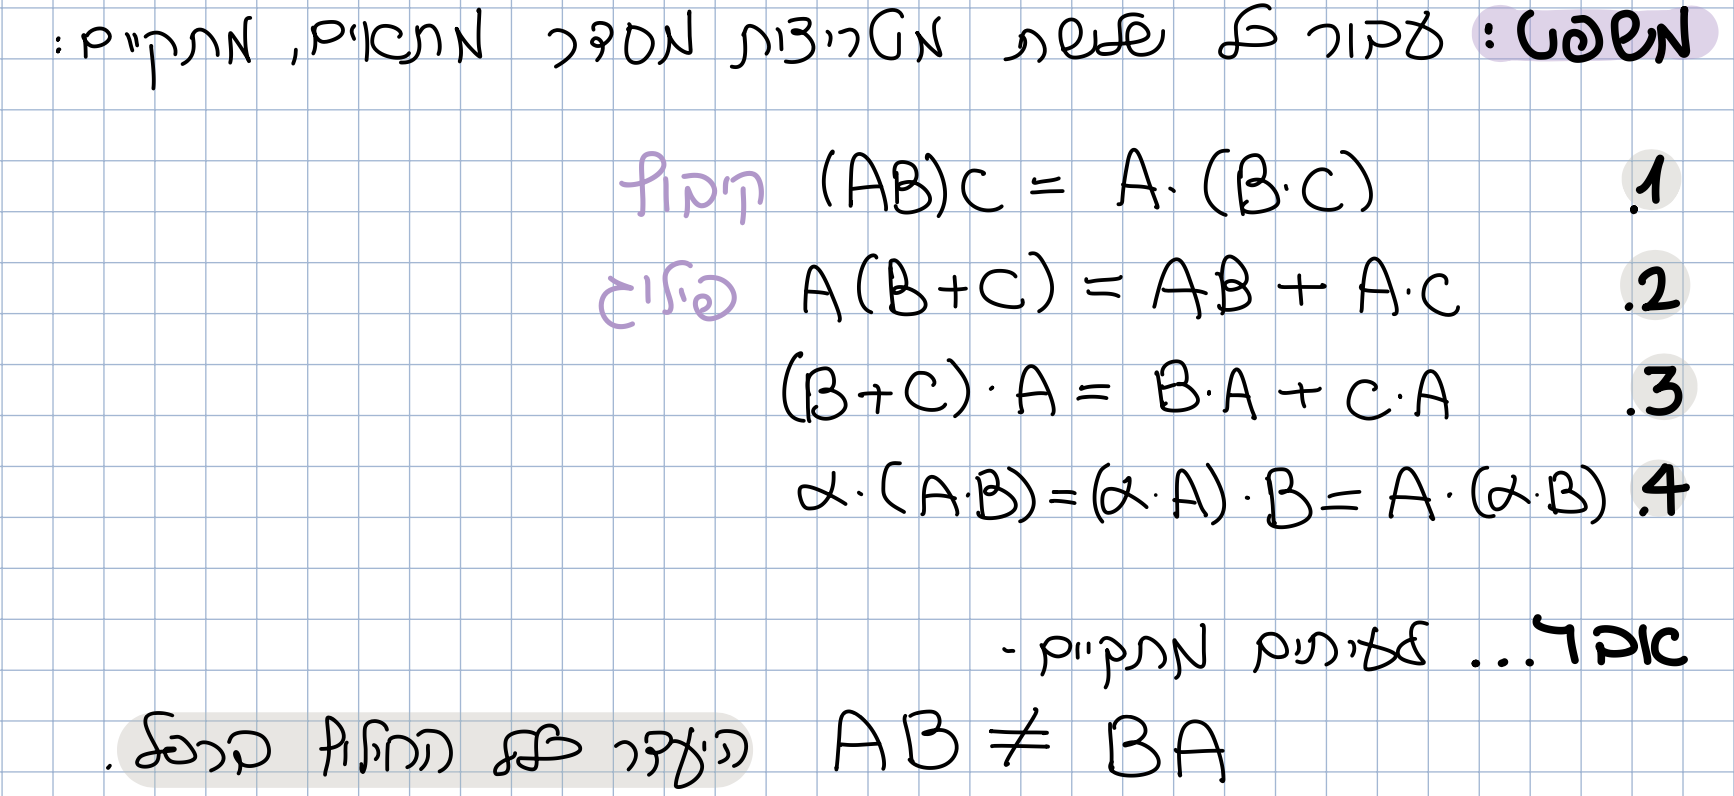 משפט: עבור כל שלושת מטריצות מסדר מתאים, מתקיים:
1. (AB)C = A·(B·C) קיבוץ
2. A(B+C) = AB + A·C פילוג
3. (B+C)·A = B·A + C·A
4. α·(A·B)=(α·A)·B= A·(α·B)
אבל... לעיתים מתקיים -
AB ≠ BA היעדר כלל החילוף בכפל.